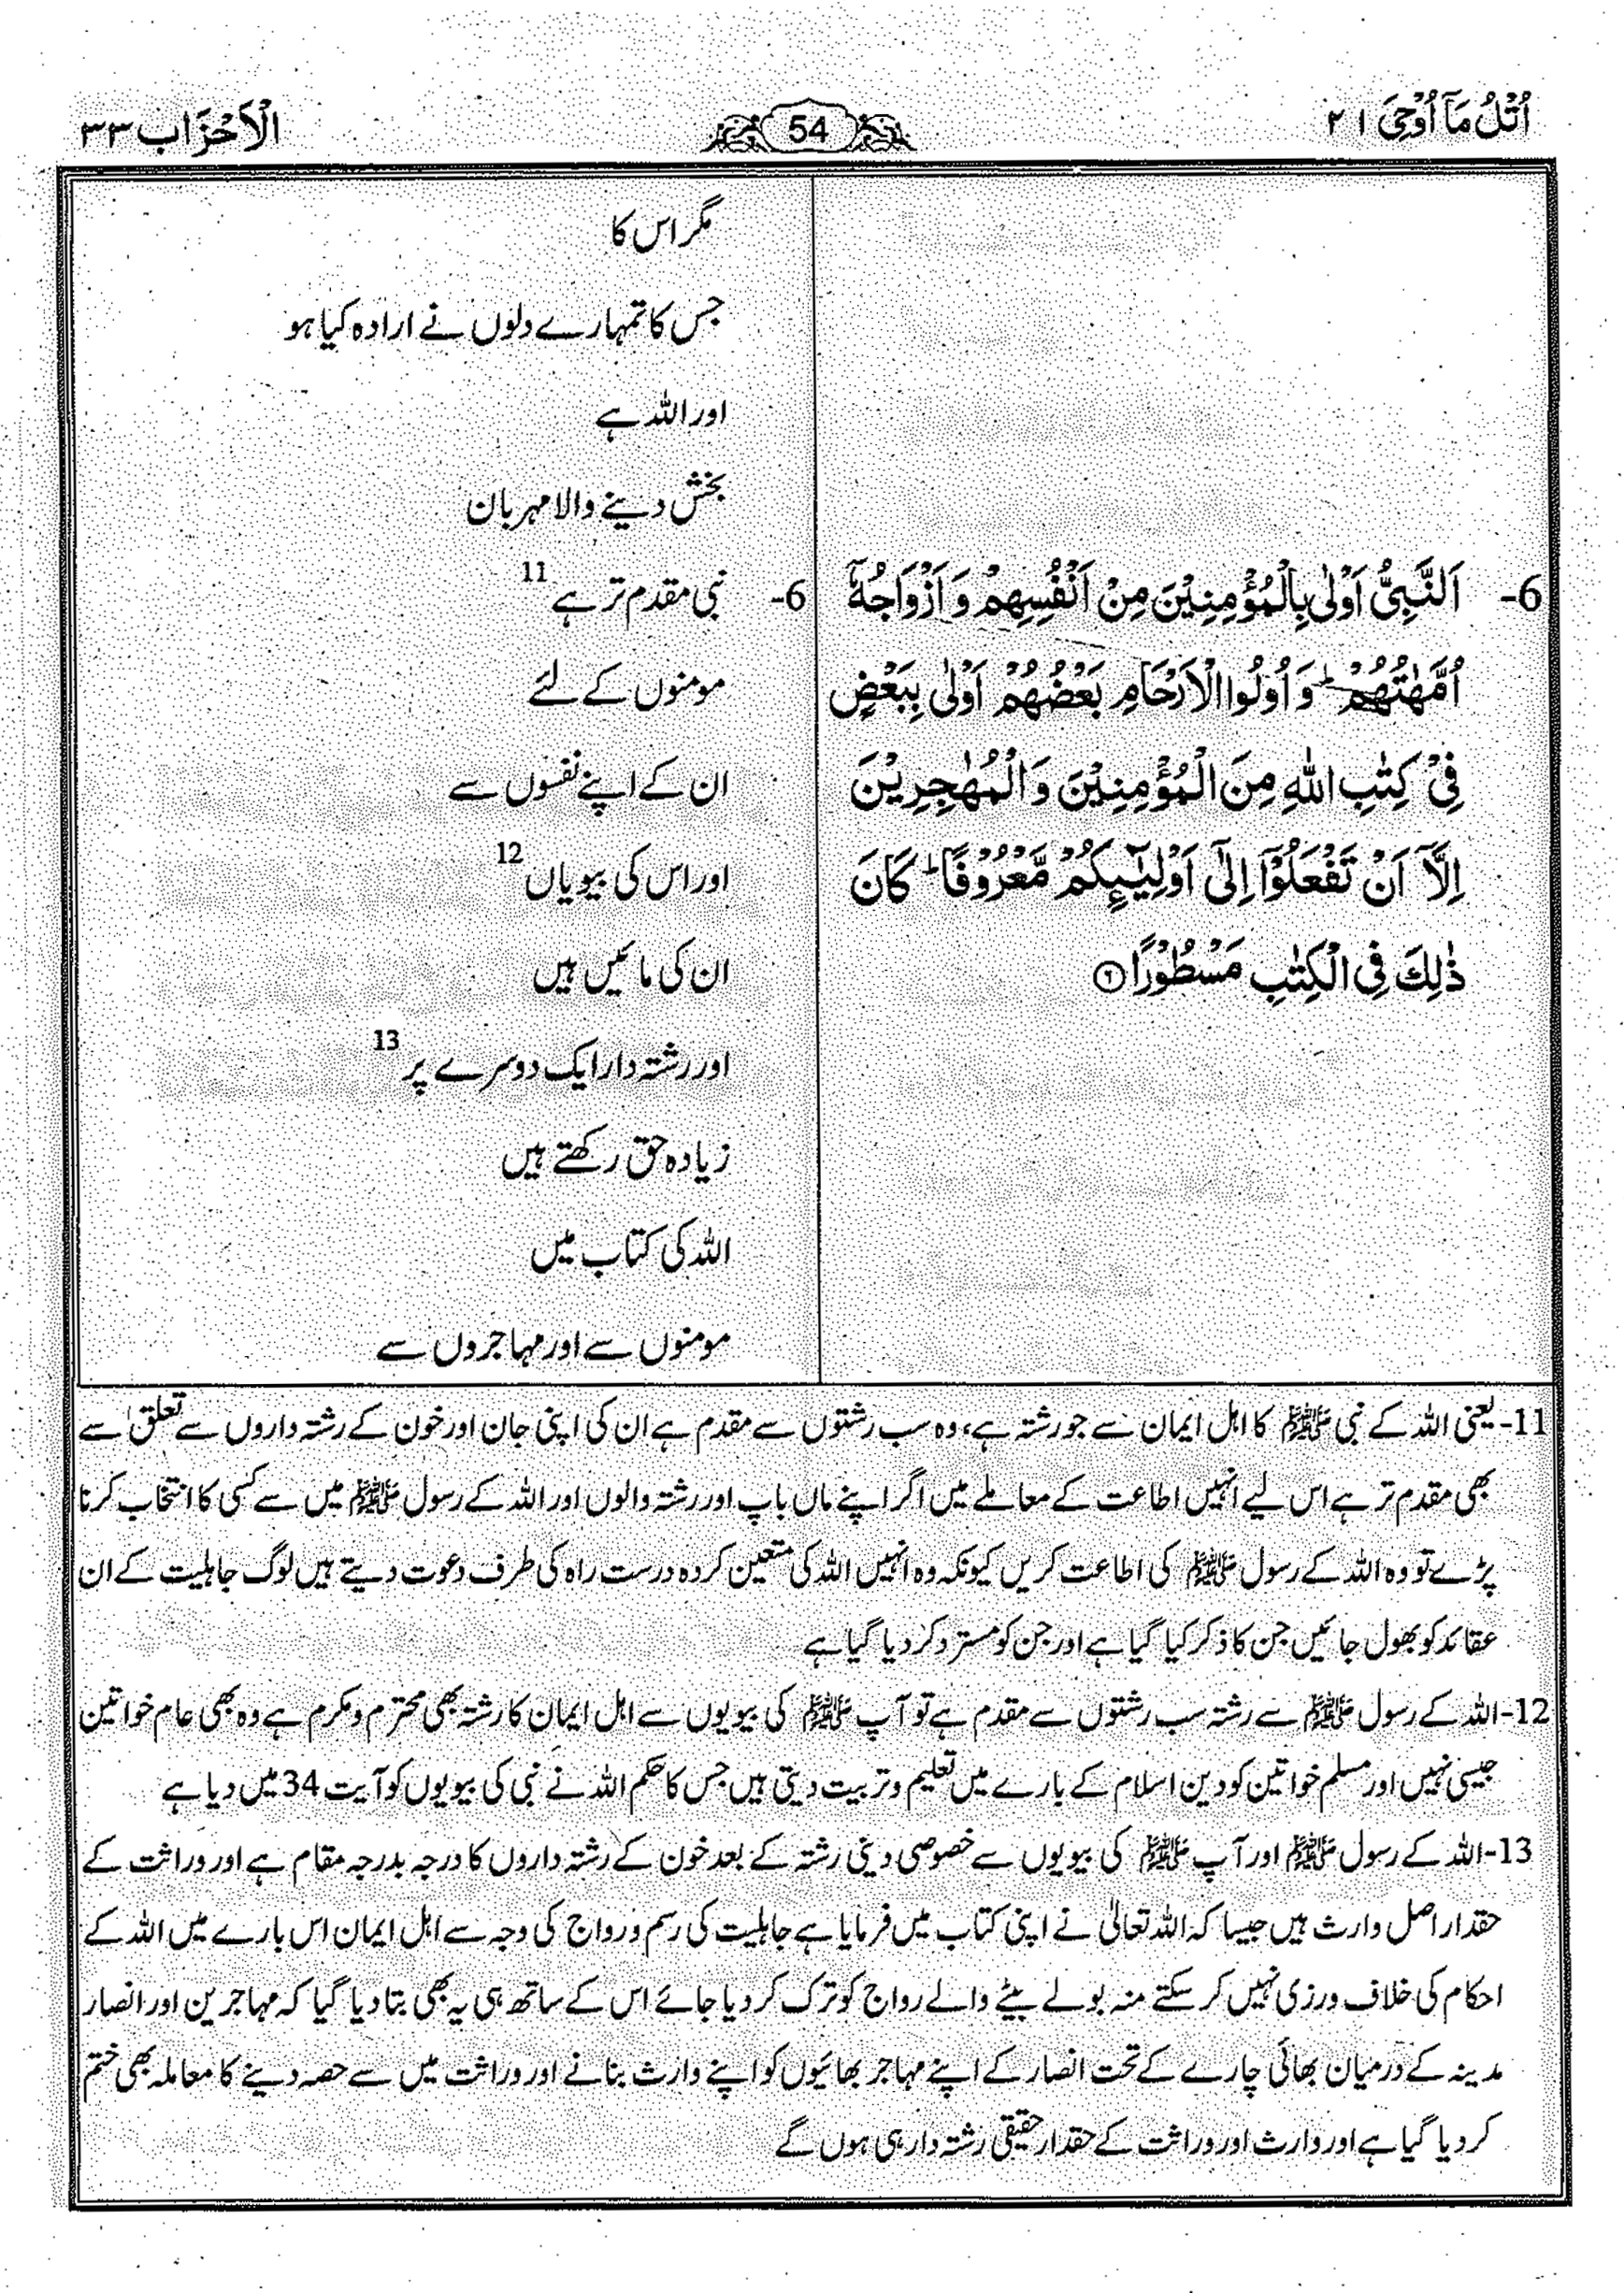 اُتْلُ مَآ اُوْحِيَ ٢١
54
الْاَحْزَاب ٣٣
مگر اس کا
جس کا تمہارے دلوں نے ارادہ کیا ہو
اور اللہ ہے
بخش دینے والا مہربان
6- اَلنَّبِيُّ اَوْلٰى بِالْمُؤْمِنِيْنَ مِنْ اَنْفُسِهِمْ وَ اَزْوَاجُهٗٓ
اُمَّهٰتُهُمْ ؕ وَ اُولُوا الْاَرْحَامِ بَعْضُهُمْ اَوْلٰى بِبَعْضٍ
فِيْ كِتٰبِ اللّٰهِ مِنَ الْمُؤْمِنِيْنَ وَ الْمُهٰجِرِيْنَ
اِلَّآ اَنْ تَفْعَلُوْٓا اِلٰٓى اَوْلِيٰٓـِٕكُمْ مَّعْرُوْفًا ؕ كَانَ
ذٰلِكَ فِي الْكِتٰبِ مَسْطُوْرًا ۝٦
6- نبی مقدم تر ہے 11
مومنوں کے لئے
ان کے اپنے نفسوں سے
اور اس کی بیویاں 12
ان کی مائیں ہیں
اور رشتہ دار ایک دوسرے پر 13
زیادہ حق رکھتے ہیں
اللہ کی کتاب میں
مومنوں سے اور مہاجروں سے
11- یعنی اللہ کے نبی ﷺ کا اہل ایمان سے جو رشتہ ہے، وہ سب رشتوں سے مقدم ہے ان کی اپنی جان اور خون کے رشتہ داروں سے تعلق سے
بھی مقدم تر ہے اس لیے انہیں اطاعت کے معاملے میں اگر اپنے ماں باپ اور رشتہ والوں اور اللہ کے رسول ﷺ میں سے کسی کا انتخاب کرنا
پڑے تو وہ اللہ کے رسول ﷺ کی اطاعت کریں کیونکہ وہ انہیں اللہ کی متعین کردہ درست راہ کی طرف دعوت دیتے ہیں لوگ جاہلیت کے ان
عقائد کو بھول جائیں جن کا ذکر کیا گیا ہے اور جن کو مسترد کر دیا گیا ہے
12- اللہ کے رسول ﷺ سے رشتہ سب رشتوں سے مقدم ہے تو آپ ﷺ کی بیویوں سے اہل ایمان کا رشتہ بھی محترم و مکرم ہے وہ بھی عام خواتین
جیسی نہیں اور مسلم خواتین کو دین اسلام کے بارے میں تعلیم و تربیت دیتی ہیں جس کا حکم اللہ نے نبی کی بیویوں کو آیت 34 میں دیا ہے
13- اللہ کے رسول ﷺ اور آپ ﷺ کی بیویوں سے خصوصی دینی رشتہ کے بعد خون کے رشتہ داروں کا درجہ بدرجہ مقام ہے اور وراثت کے
حقدار اصل وارث ہیں جیسا کہ اللہ تعالیٰ نے اپنی کتاب میں فرمایا ہے جاہلیت کی رسم و رواج کی وجہ سے اہل ایمان اس بارے میں اللہ کے
احکام کی خلاف ورزی نہیں کر سکتے منہ بولے بیٹے والے رواج کو ترک کر دیا جائے اس کے ساتھ ہی یہ بھی بتا دیا گیا کہ مہاجرین اور انصار
مدینہ کے درمیان بھائی چارے کے تحت انصار کے اپنے مہاجر بھائیوں کو اپنے وارث بنانے اور وراثت میں سے حصہ دینے کا معاملہ بھی ختم
کر دیا گیا ہے اور وارث اور وراثت کے حقدار حقیقی رشتہ دار ہی ہوں گے